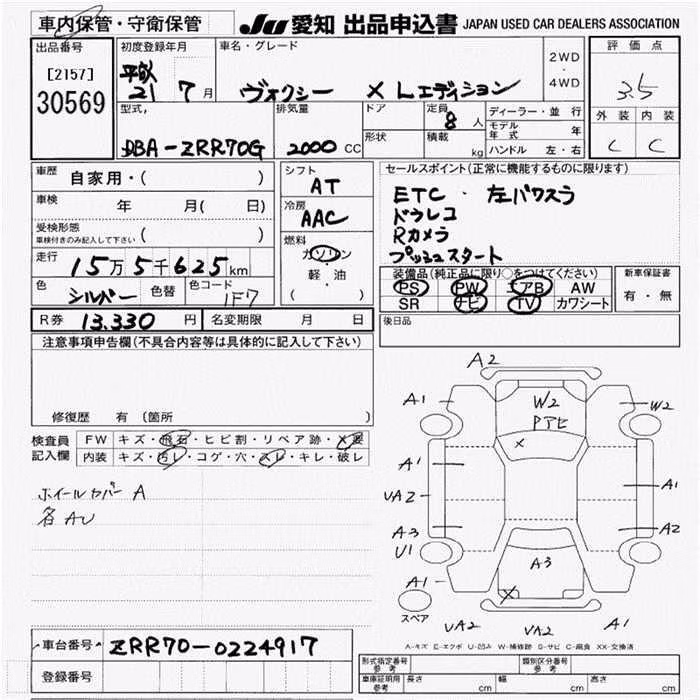 車内保管・守衛保管 JU 愛知 出品申込書 JAPAN USED CAR DEALERS ASSOCIATION
出品番号 [2157] 30569
初度登録年月 平成 21 7月
車名・グレード ヴォクシー X Lエディション
2WD・4WD
評価点 3.5
外装 内装
C C
型式, DBA-ZRR70G
排気量 2000 CC
ドア
形状
定員 8人
積載 kg
ディーラー・並行
モデル年式 年
ハンドル 左・右
車歴 自家用・( )
車検 年 月( 日)
受検形態 車検付きのみ記入して下さい ( )
走行 15万5千625km
色 シルバー 色替 色コード 1F7
シフト AT
冷房 AAC
燃料 ガソリン・軽・油 ( )
セールスポイント(正常に機能するものに限ります)
ETC・左パワスラ
ドラレコ
Rカメラ
プッシュスタート
装備品(純正品に限り○をつけてください)
PS PW エアB AW
SR ナビ TV カワシート
新車保証書 有・無
R券 13.330 円 名変期限 月 日
後日品
注意事項申告欄(不具合内容等は具体的に記入して下さい)
修復歴 有 (箇所 )
検査員記入欄
FW キズ・飛石・ヒビ割・リペア跡・X要
内装 キズ・汚レ・コゲ・穴・スレ・キレ・破レ
ホイールカバー A
各AU
A2
A1 W2
W2
A1 A1
UA2
A3 A2
U1
A3
A1
スペア
UA2 UA2 A1
A-キズ E-エクボ U-凹み W-補修跡 S-サビ C-腐食 XX-交換済
車台番号 ZRR70-0224917
登録番号
形式指定番号 参考 類別区分番号 参考
車庫証明用 参考 長さ cm 幅 cm 高さ cm